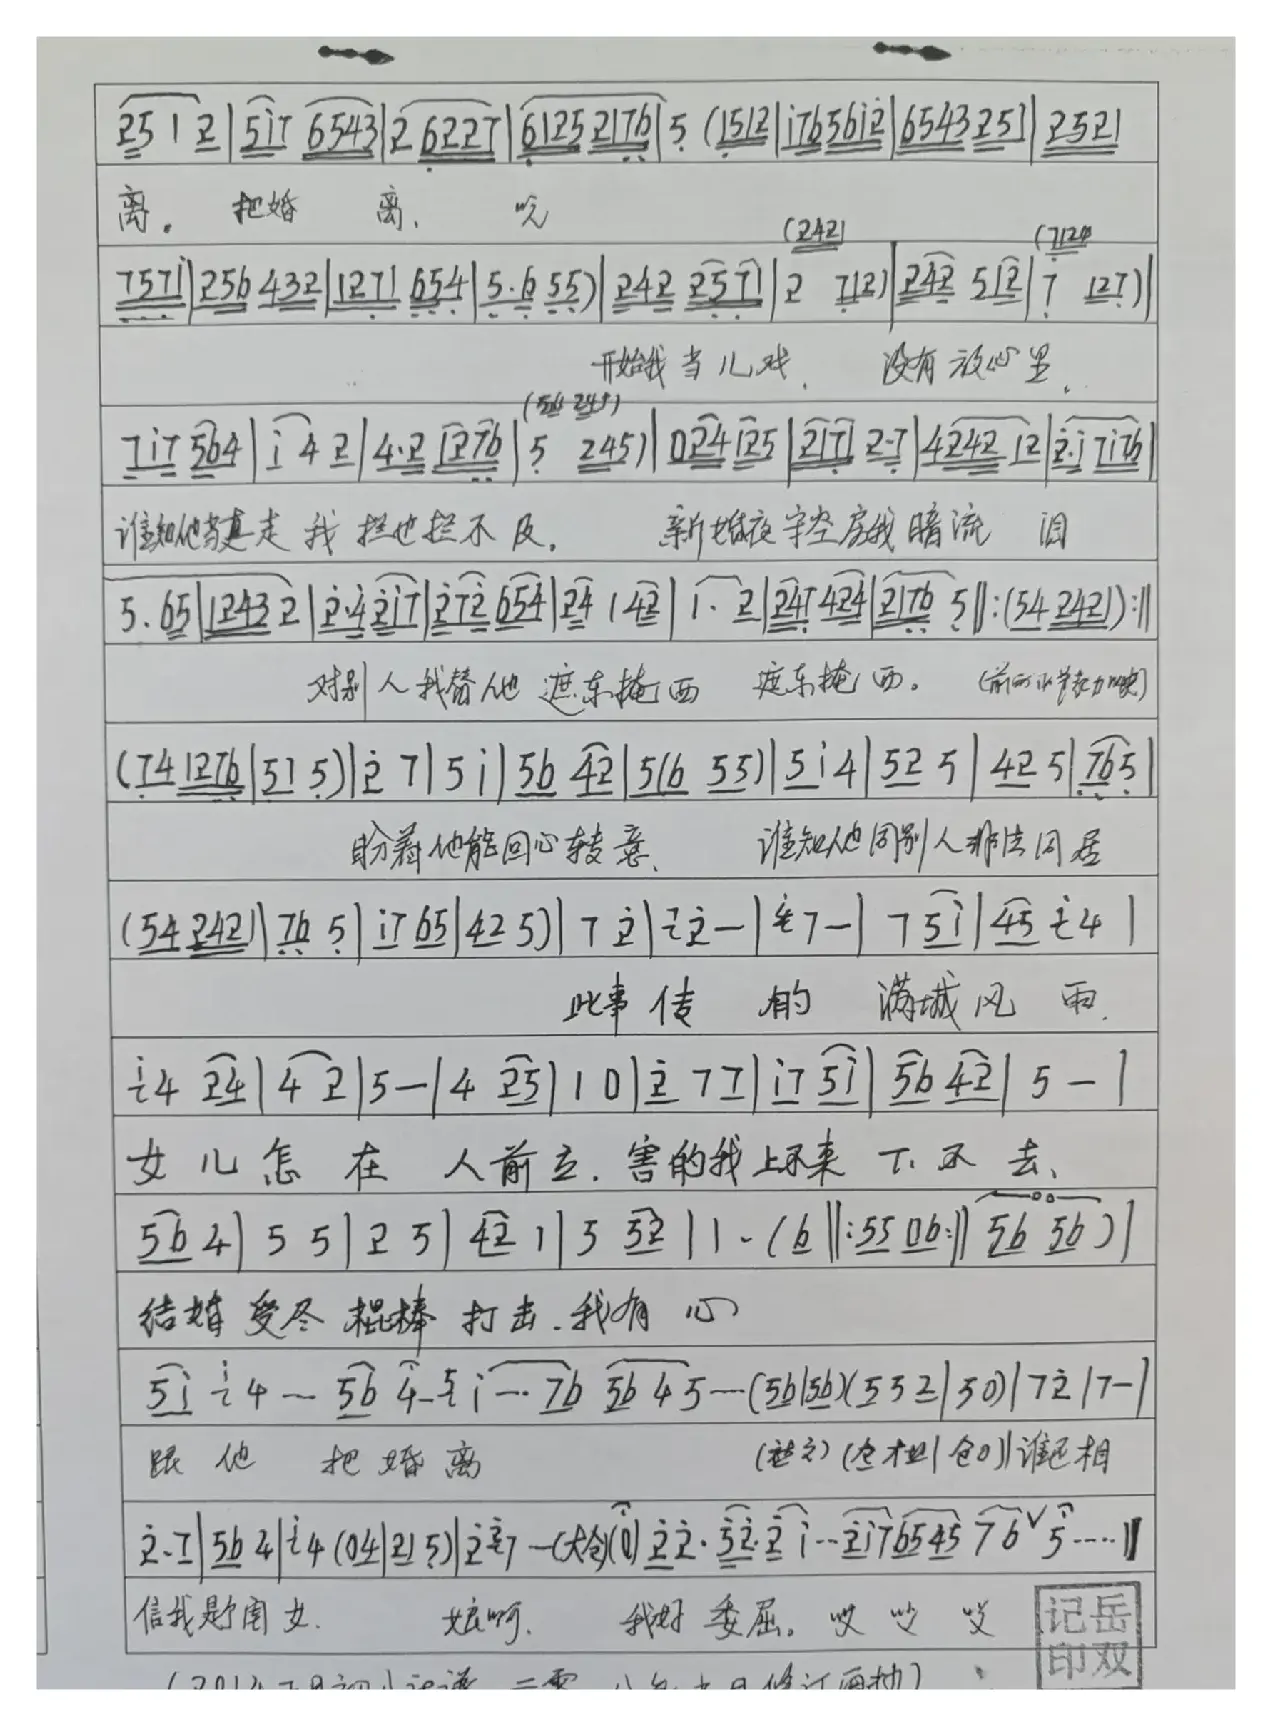 2512|5i7 6543|2 6227|6125 2176|5 (1512|i7656i2|6543251|2521
离。 把婚 离、
(2421 (712
7571|256 432|1271 654|5.6 55)|242 2571|2 712)|242 512|7 127)|
开始我当儿戏、 没有放心里、
(54 245)
7i7 564|i 4 2|4.2 1276|5 245)|024 125|2171 2.7|4242 12|2.i 7i76|
谁知他当真走 我拦也拦不及。 新婚夜守空房我暗流 泪
5.65|12432|2.4 2i7|272 654|24 142|1. 2|247 424|2176 5‖:(54 2421):‖
对别人我替他 遮东掩西 遮东掩西。
(74 1276|51 5)|2 7|5 i|56 42|5(6 55)|5i4|52 5|42 5|765|
盼着他能回心转意、 谁知他同别人非法同居
(54 2421|76 5|i7 65|42 5)|7 2|2-|7-|7 5i|45 4|
此事传 的 满城风 雨、
4 24|4 2|5-|4 25|1 0|2 77|i7 5i|56 42|5-|
女儿怎 在 人前立、害的我上不来 下不去、
56 4|5 5|2 5|42 1|5 52|1-(6‖:55 06:‖56 56)|
结婚 受尽 棍棒 打击、我有 心
5i 4--56 4-i--76 56 4 5---(56|56)(552|50)|72|7-|
跟 他 把 婚 离 谁还相
2.7|56 4|4(04|21 5)|2 7-(大仓)(0)22.52.2 i--2i76545 76ˇ5----‖
信我是个闺女、 娘啊、 我好 委屈。哎 哎 哎
记岳
印双